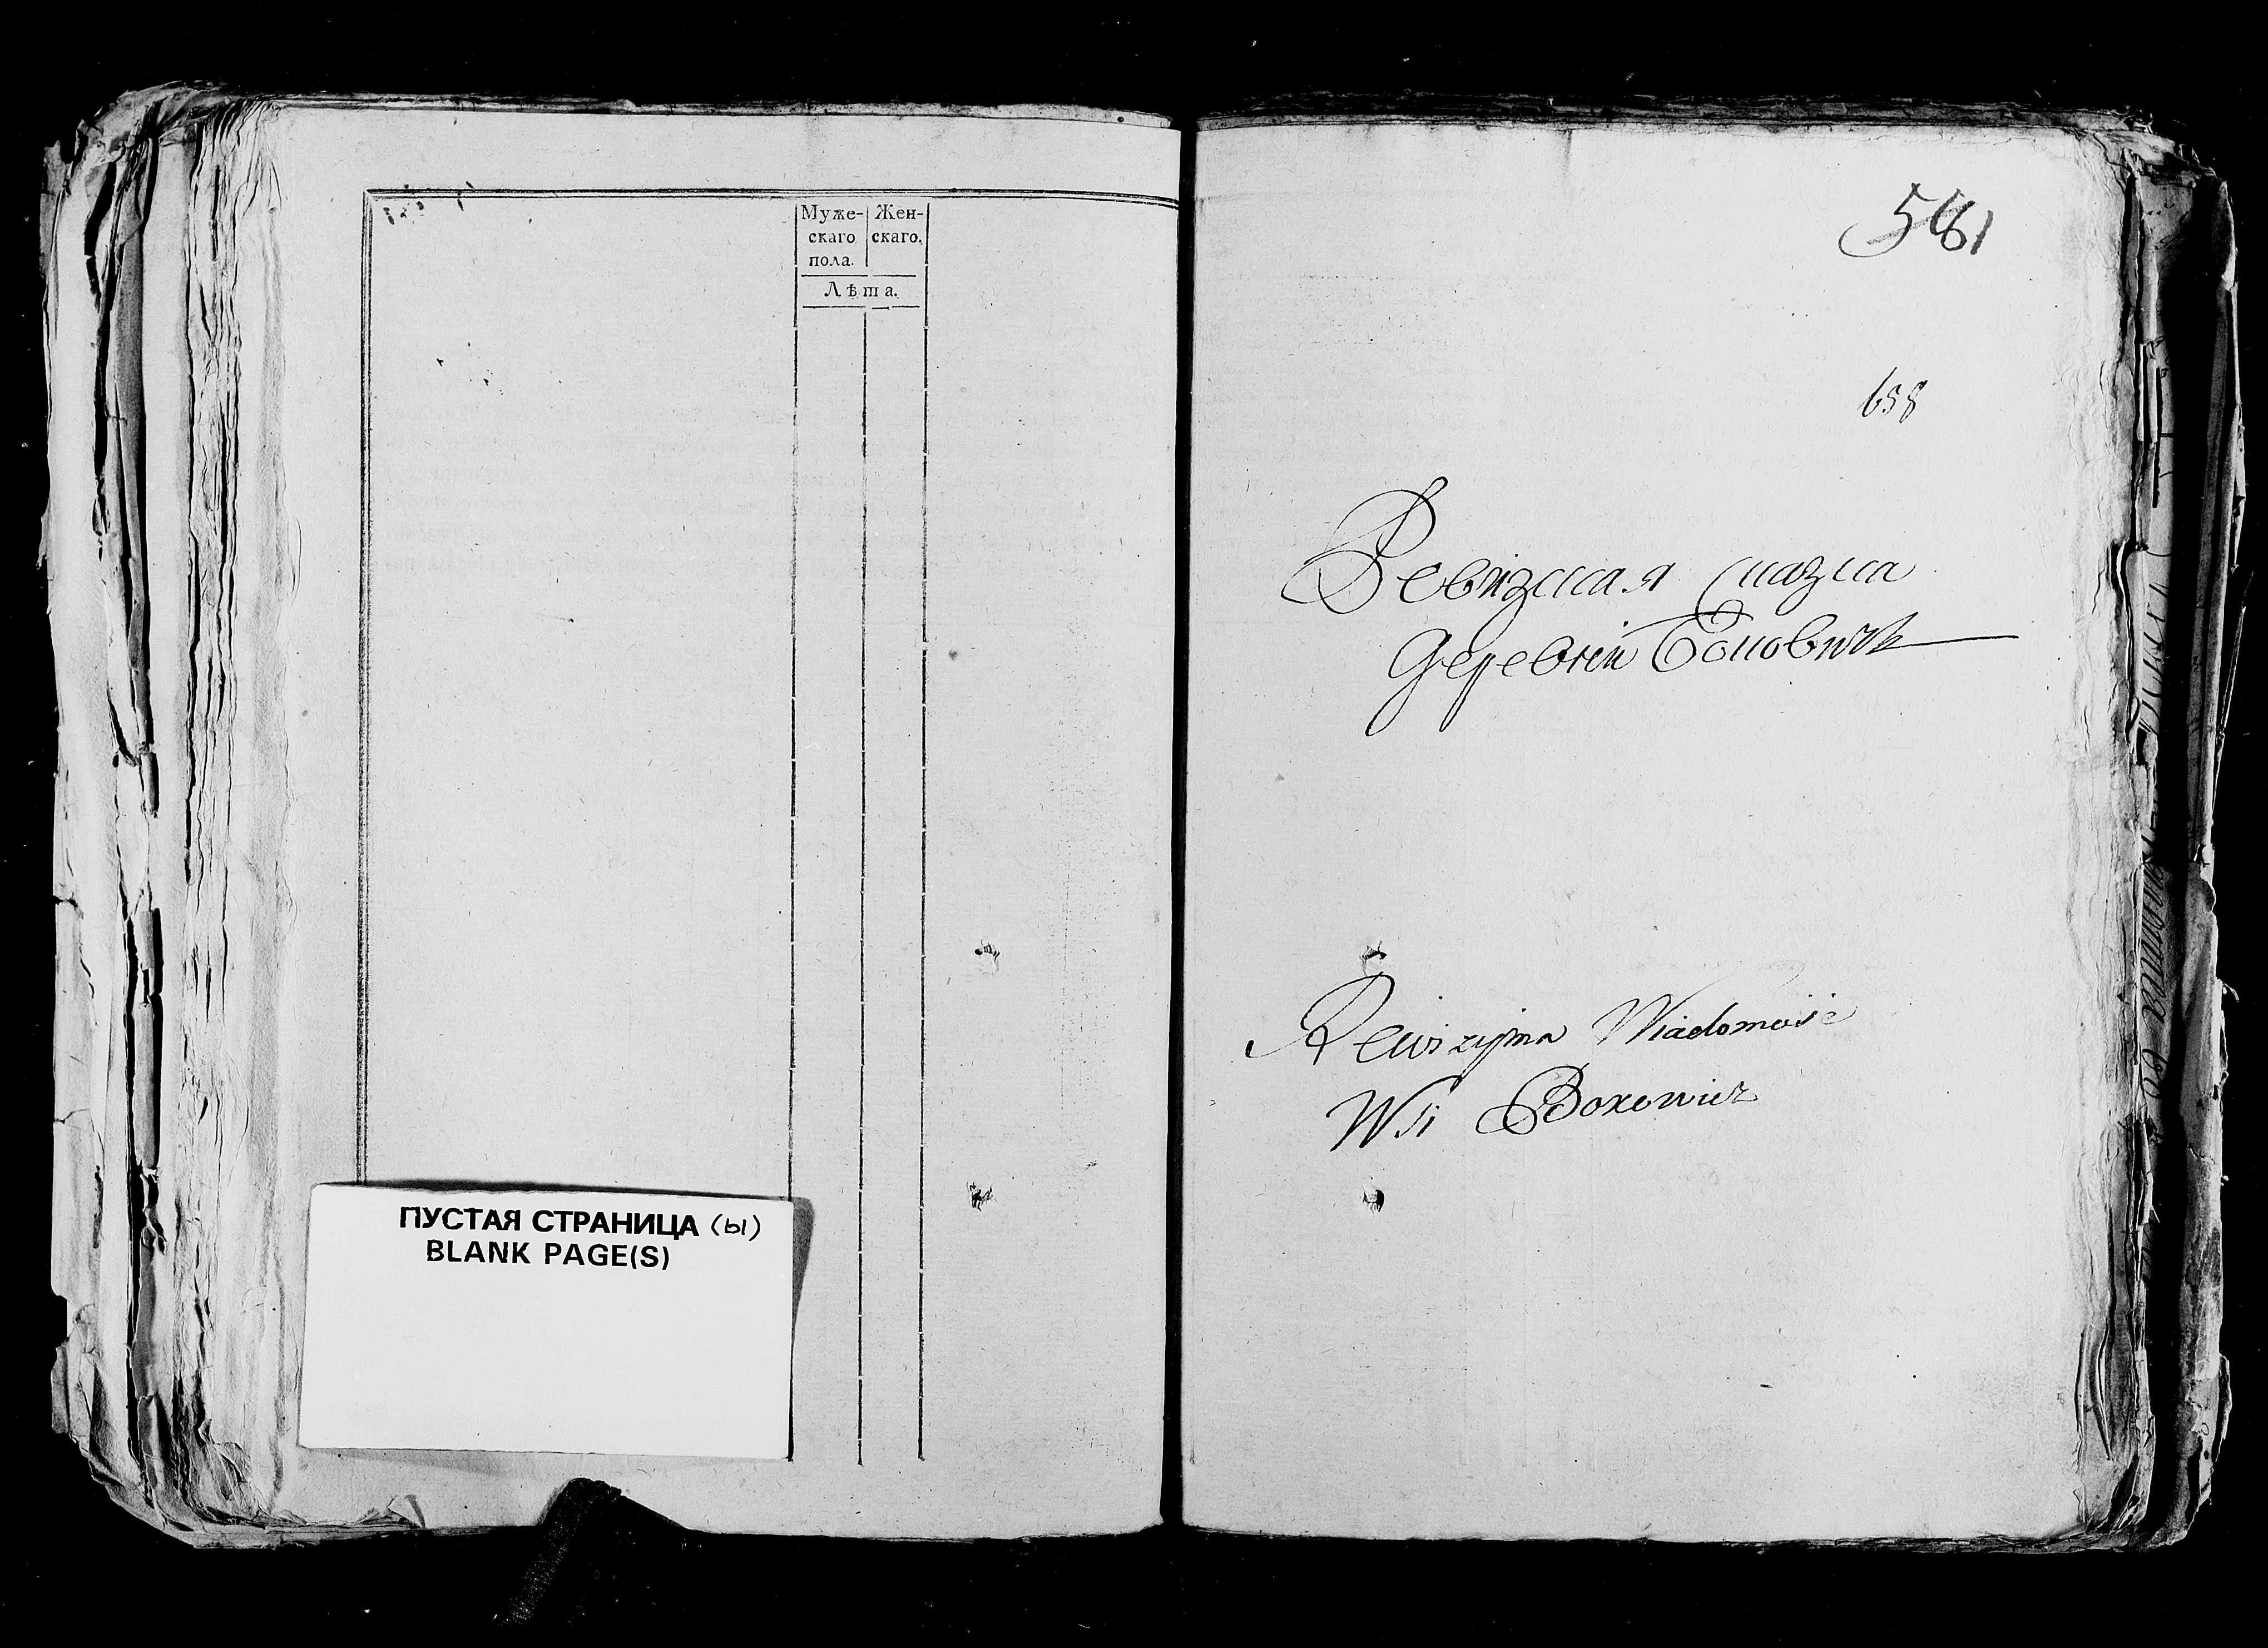 Муже-
скаго
пола.
Жен-
скаго.
Лѣта.
ПУСТАЯ СТРАНИЦА (Ы)
BLANK PAGE(S)
581
658
Ревизская сказка
деревни Боковичъ
Rewizyjna Wiadomość
Wsi Bokowicz